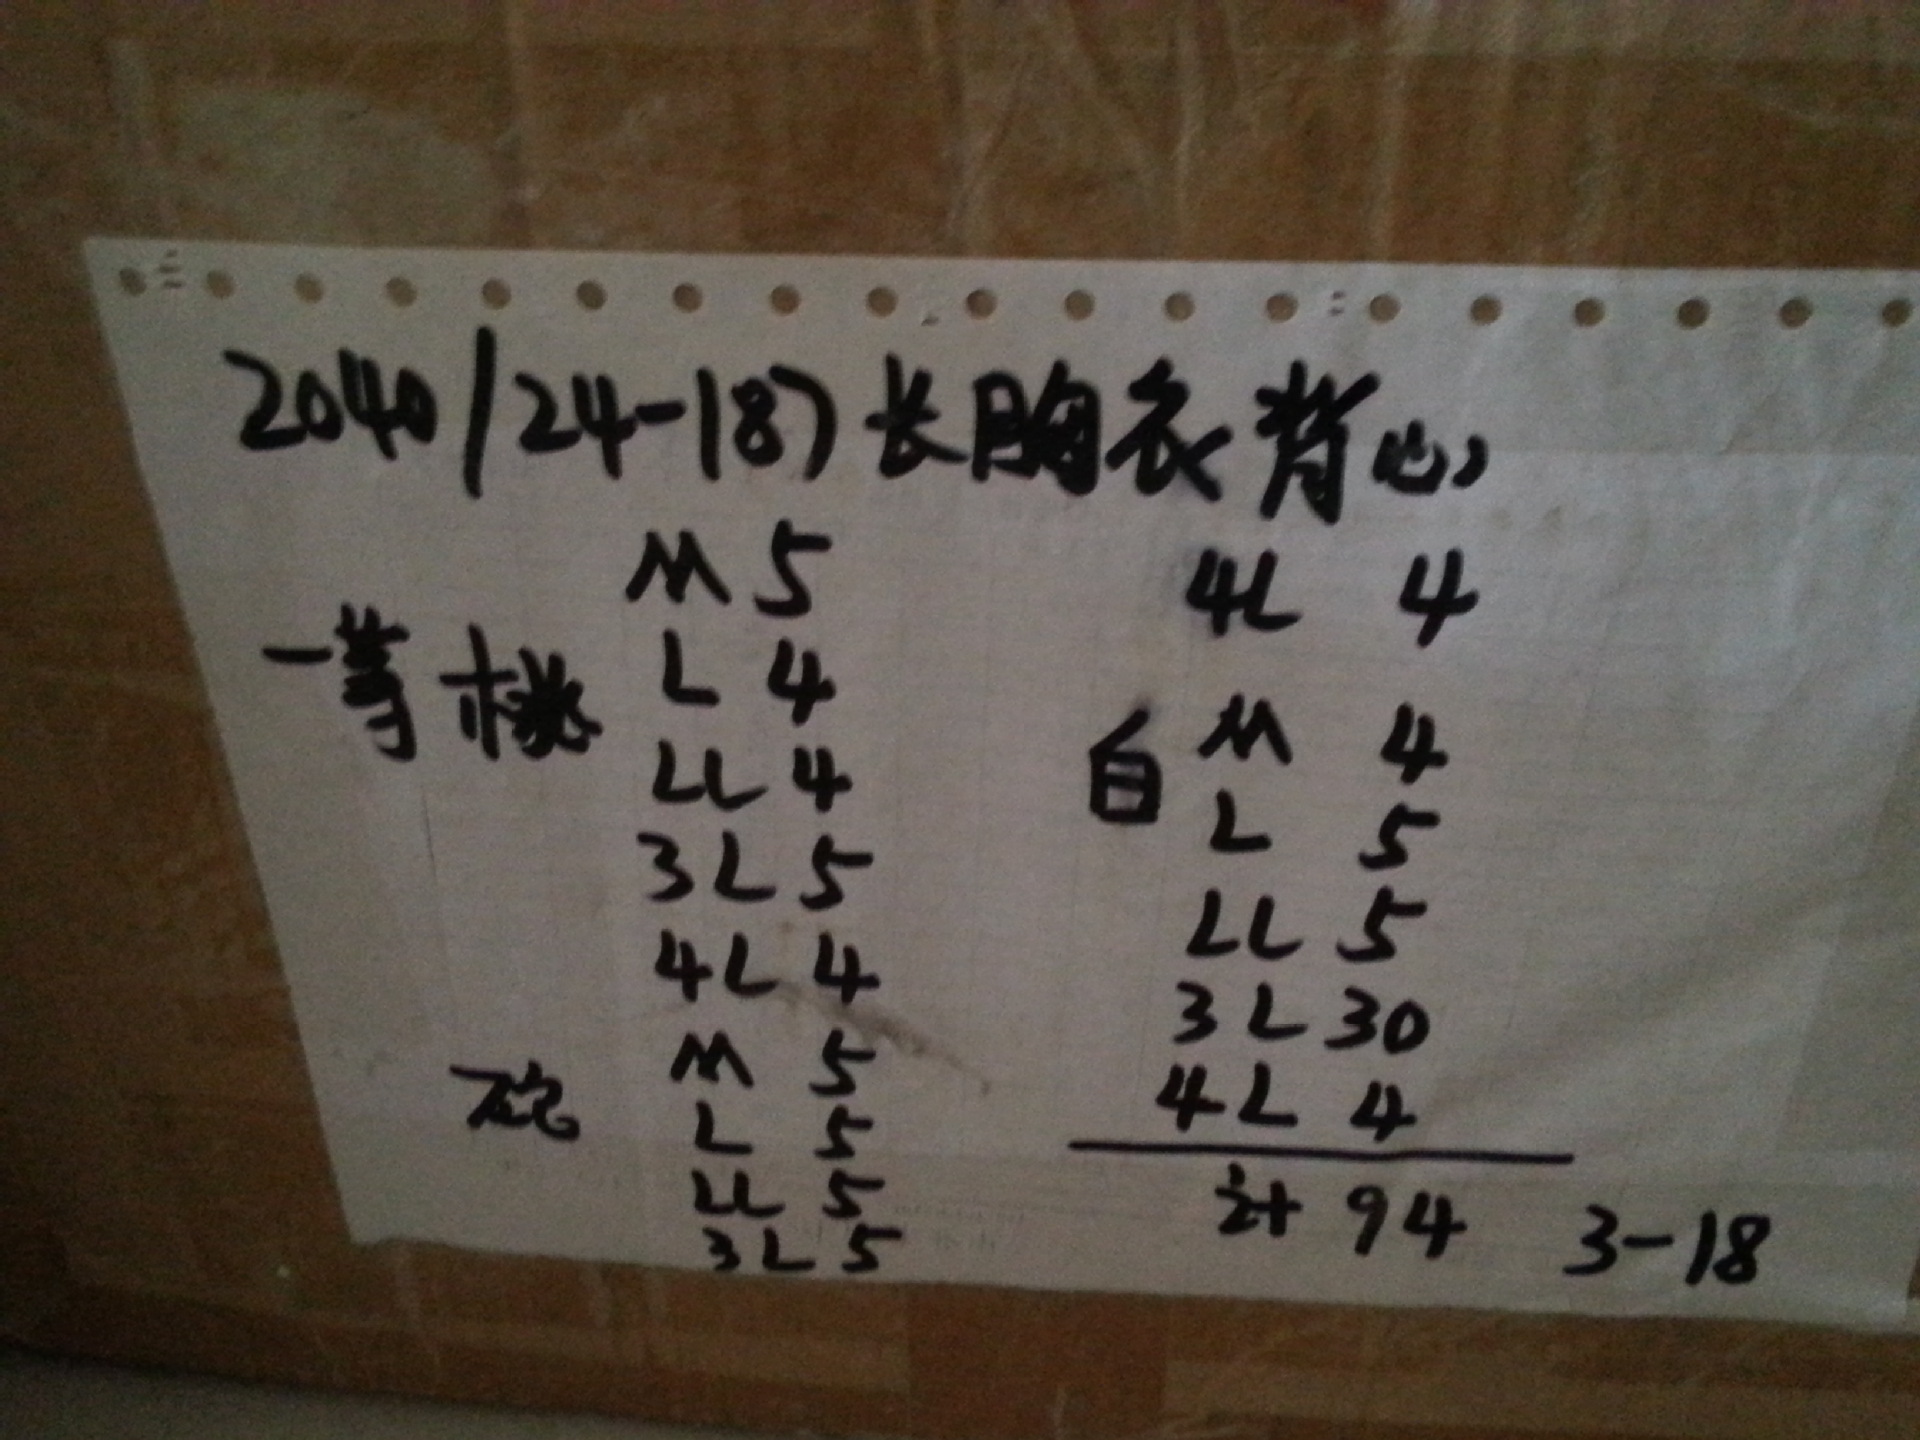 2040/24-187长胸衣背心
一等 桃 M 5
L 4
LL 4
3L 5
4L 4
M 5
L 5
LL 5
3L 5
4L 4
白 M 4
L 5
LL 5
3L 30
4L 4
计 94 3-18